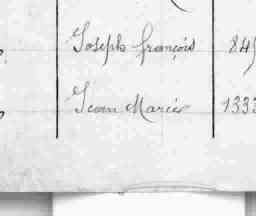 Joseph françois 845
Jean Marie 1333